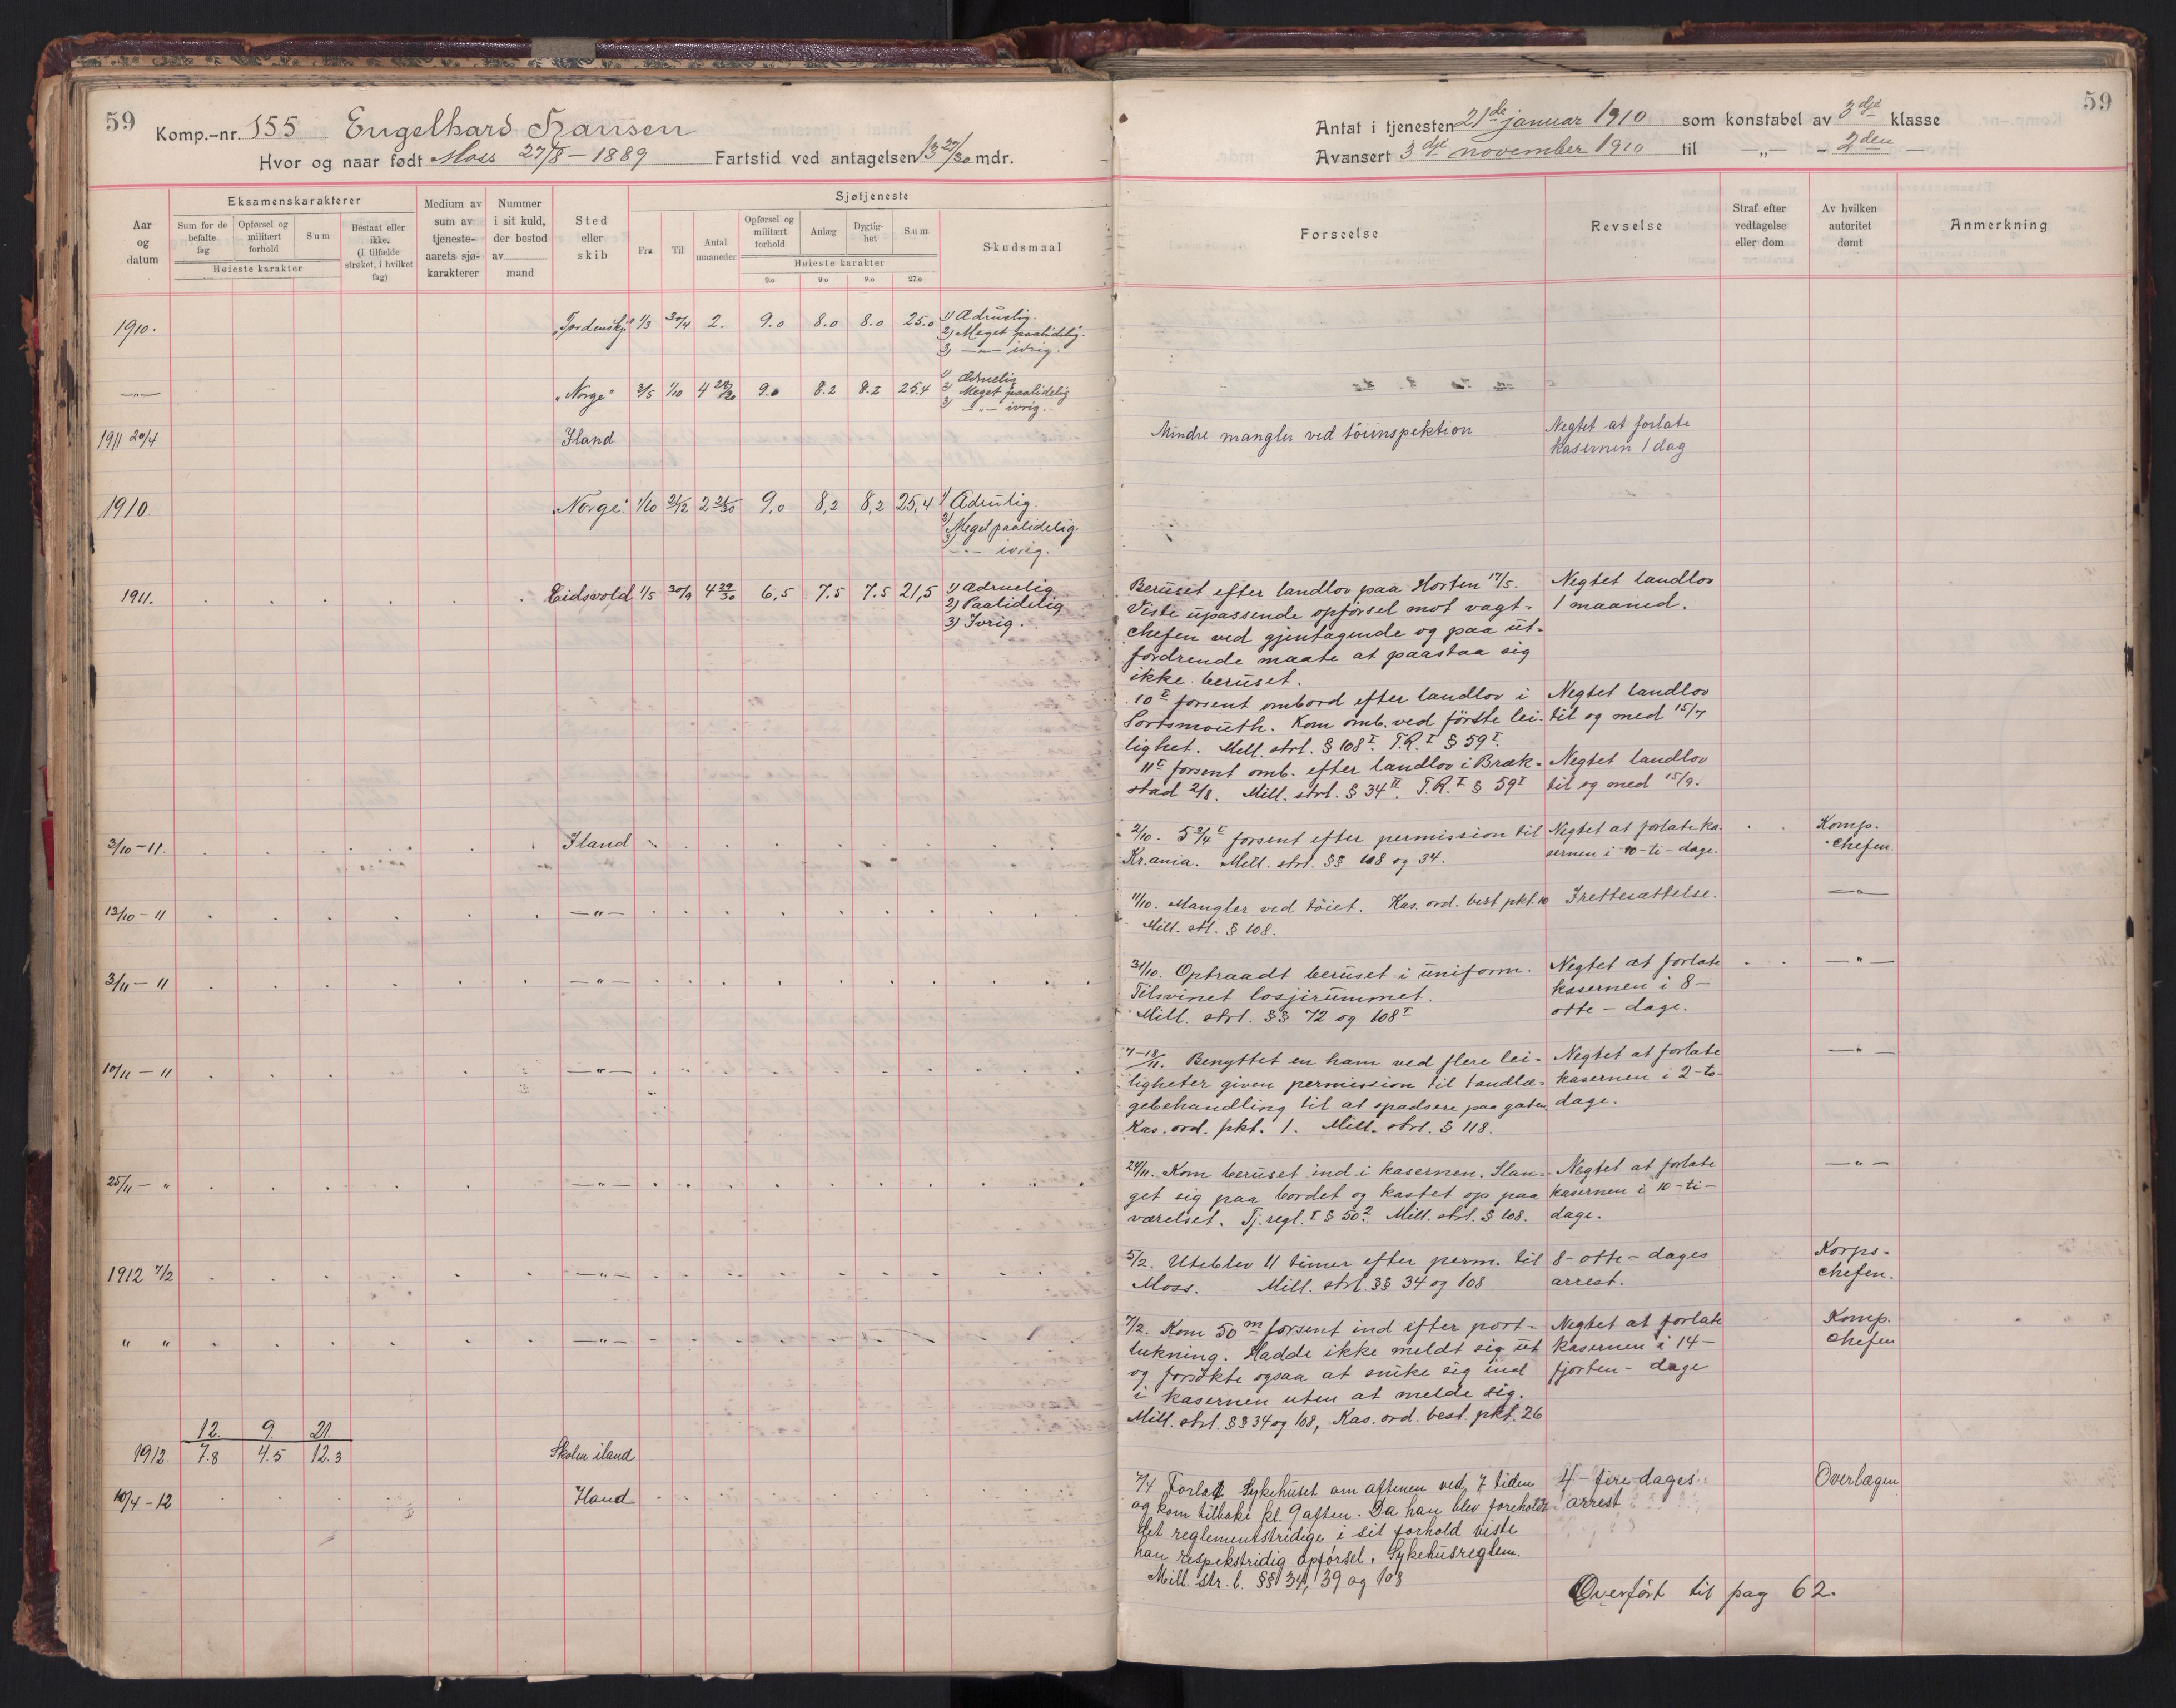 59
Komp.-nr. 155 Engelhard Hansen
Hvor og naar født Moss 27/8 – 1889 Fartstid ved antagelsen 13 27/30 mdr.
Aar og datum
Eksamenskarakterer
Sum for de befalte fag
Opførsel og militært forhold
Sum
Høieste karakter
Bestaat eller ikke. (I tilfælde strøket, i hvilket fag)
Medium av sum av tjeneste- aarets sjø- karakterer
Nummer i sit kuld, der bestod av mand
Sted eller skib
Sjøtjeneste
Fra
Til
Antal maaneder
Opførsel og militært forhold
Anlæg
Dygtig- het
Sum
Høieste karakter
9.0 9.0 9.0 27.0
Skudsmaal
1910. "Tordenskj" 1/3 30/4 2. 9.0 8.0 8.0 25.0 1) Ædruelig.
2) Meget paalidelig.
3) —"— ivrig.
—"— "Norge" 3/5 1/10 4 28/30 9.0 8.2 8.2 25.4 1) Ædruelig
2) Meget paalidelig
3) —"— ivrig.
1911 20/4 Iland
1910 "Norge" 1/10 21/12 2 21/30 9,0 8,2 8,2 25,4 1) Ædrulig.
2) Meget paalidelig.
3) —"— ivrig.
1911. Eidsvold 1/5 30/9 4 29/30 6,5 7.5 7.5 21,5 1) Ædruelig
2) Paalidelig
3) Ivrig.
3/10 – 11. Iland
13/10 – 11 —"—
3/11 – 11 —"—
—"—
25/11 – " —"—
1912 7/2 —"—
" " —"—
12. 9. 21.
1912. 7.8 4.5 12.3 Skolen iland
10/4 – 12 Iland
59
Antat i tjenesten 21de januar 1910 som konstabel av 3dje klasse
Avansert 3dje november 1910 til —„— – 2den —
Forseelse
Revselse
Straf efter vedtagelse eller dom
Av hvilken autoritet dømt
Anmerkning
Mindre mangler ved tøiinspektion Negtet at forlate
kasernen 1 dag
Beruset efter landlov paa Horten 17/5. Negtet landlov
Viste upassende opførsel mot vagt- 1 maaned.
chefen ved gjentagende og paa ut-
fordrende maate at paastaa sig
ikke beruset.
10 T forsent ombord efter landlov i Negtet landlov
Portsmouth. Kom omb. ved første lei- til og med 15/7
lighet. Mill. strl. § 108 I. T.R. I § 59 I.
11 T forsent omb. efter landlov i Bræk- Negtet landlov
stad 2/8. Mill. strl. § 34 II. T.R. I § 59 I til og med 15/9.
2/10. 5 3/4 T forsent efter permission til Negtet at forlate ka- Komp.
Kr.ania. Mill. strl. §§ 108 og 34. sernen i 10-ti-dage. chefen.
11/10. Mangler ved tøiet. Kas. ord. best pkt. 10 Irettesættelse. —"—
Mill. stl. § 108.
31/10. Optraadt beruset i uniform. Negtet at forlate —"—
Tilsvinet losjirummet. kasernen i 8 –
Mill. strl. §§ 72 og 108 I otte – dage.
7–18/11. Benyttet en ham ved flere lei- Negtet at forlate —"—
ligheter given permission til tandlæ- kasernen i 2-to-
gebehandling til at spadsere paa gaten. dage.
Kas. ord. pkt. 1. Mill. strl. § 118.
24/11. Kom beruset ind i kasernen. Slæn- Negtet at forlate —"—
get sig paa bordet og kastet op paa kasernen i 10-ti-
værelset. Tj. regl. I § 50.2 Mill. strl. § 108. dage.
5/2. Uteblev 11 timer efter perm. til 8 – otte – dages Korps-
Moss. Mill. strl. §§ 34 og 108 arrest. chefen.
7/2. Kom 50 m forsent ind efter port- Negtet at forlate Komp.
lukning. Hadde ikke meldt sig ut kasernen i 14 – chefen
og forsøkte ogsaa at snike sig ind fjorten – dage
i kasernen uten at melde sig.
Mill. strl. §§ 34 og 108, Kas. ord. best. pkt. 26
7/4 Forlatt Sykehuset om aftenen ved 7 tiden 4 – fire-dages Overlægen
og kom tilbake kl. 9 aften. Da han blev foreholdt arrest
det reglementstridige i sit forhold viste
han respekstridig opførsel. Sykehusreglem.
Mill. str. l. §§ 34, 39 og 108
Overført til pag 62.